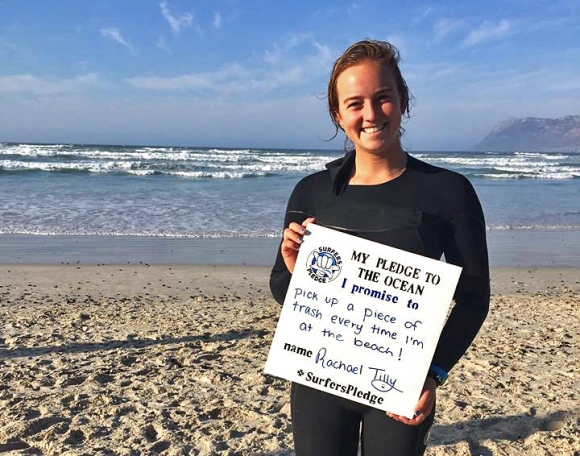 SURFERS
PLEDGE
MY PLEDGE TO
THE OCEAN
I promise to
pick up a piece of
trash every time I'm
at the beach!
name Rachael Tilly
#SurfersPledge